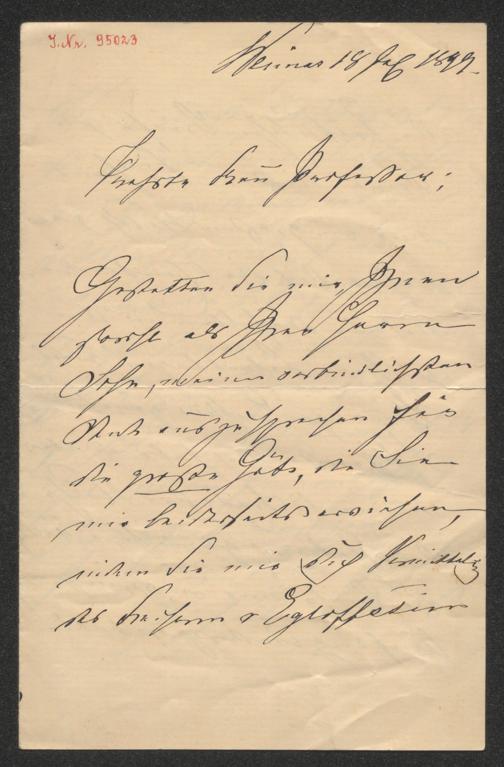 J. Nr. 95023
Weimar 18 Dez 1899.
Verehrte Frau Professor;
Gestatten Sie mir Ihnen
sowohl als Ihrem Herrn
Sohn, meinen verbindlichsten
Dank auszusprechen für
die große Güte, die Sie
mir beiderseits erwiesen,
indem Sie mir durch Vermittelg
des Freiherrn v Egloffstein